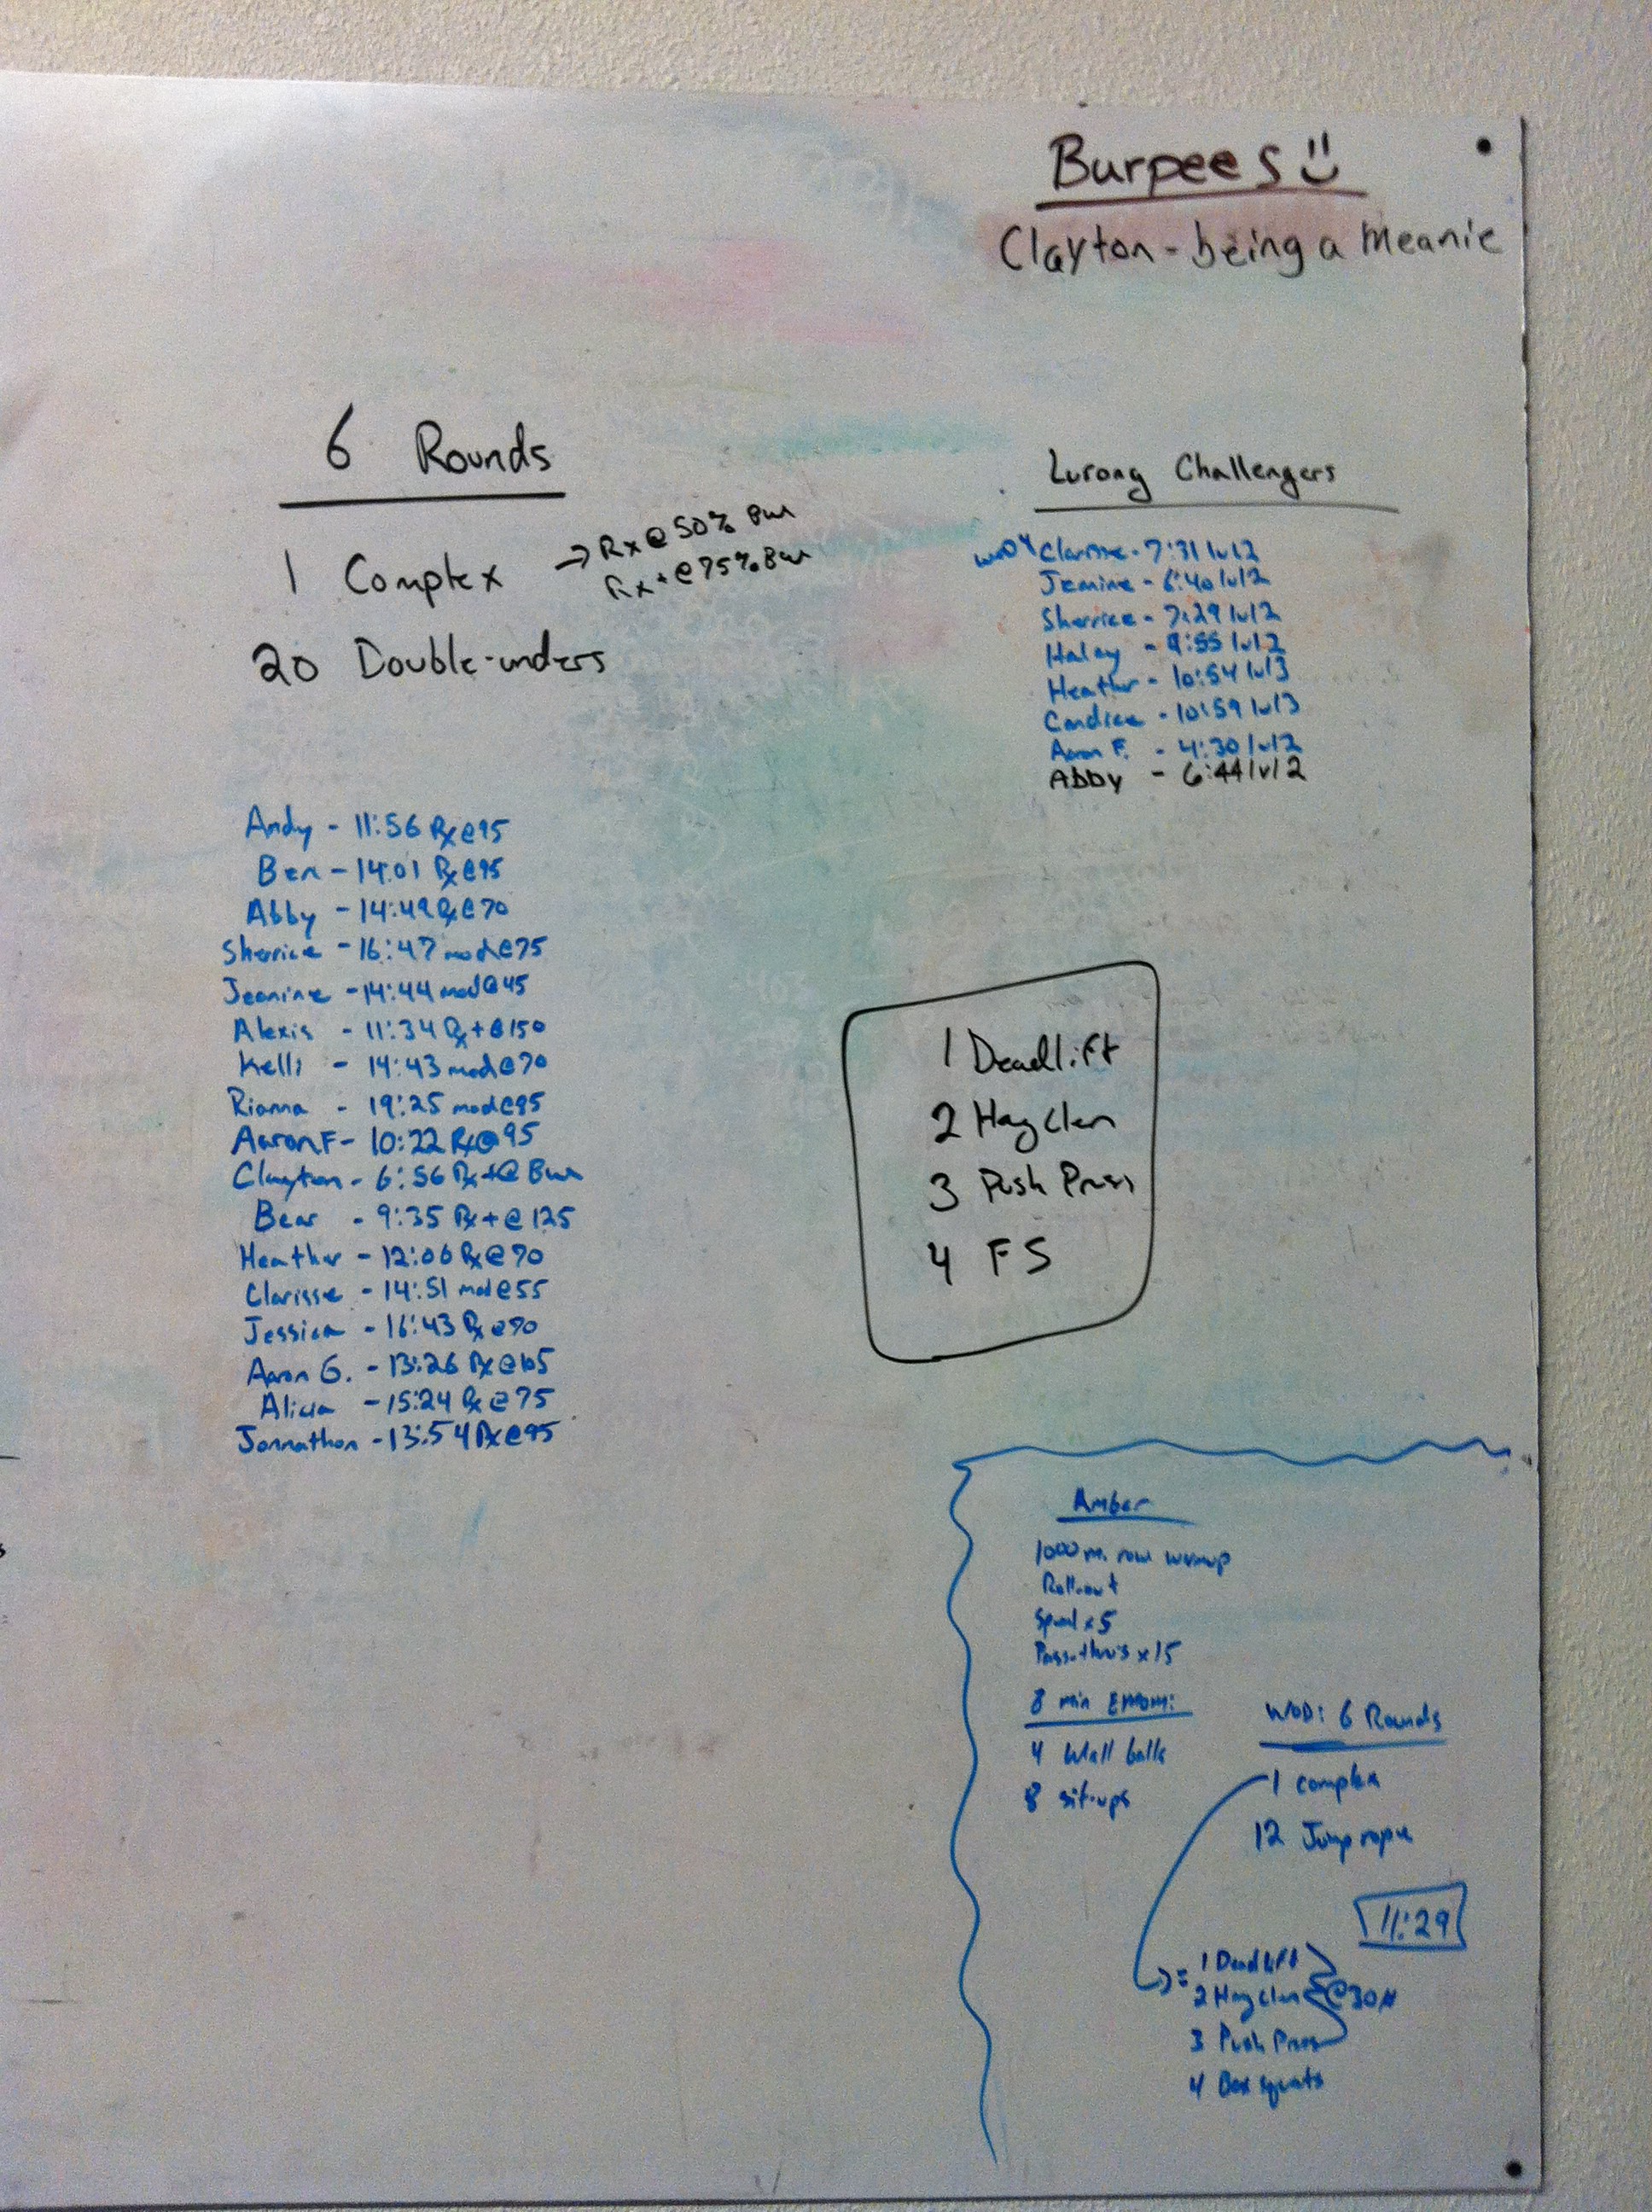 Burpees
Clayton - being a Meanie
6 Rounds
1 Complex → Rx @ 50% BW
Rx+ @ 75% BW
20 Double-unders
Lurong Challengers
WOD 4 Clarisse - 7:31 lvl2
Jeanine - 6:40 lvl2
Sherrice - 7:29 lvl2
Haley - 9:55 lvl2
Heather - 10:54 lvl3
Candice - 10:59 lvl3
Aaron F. - 4:30 lvl2
Abby - 6:44 lvl2
Andy - 11:56 Rx@95
Ben - 14:01 Rx@95
Abby - 14:49 Rx@70
Sherrice - 16:47 mod@75
Jeanine - 14:44 mod@45
Alexis - 11:34 Rx+@150
Kelli - 14:43 mod@70
Rianna - 19:25 mod@85
Aaron F - 10:22 Rx@95
Clayton - 6:56 Rx+@BW
Bear - 9:35 Rx+@125
Heather - 12:06 Rx@70
Clarisse - 14:51 mod@55
Jessica - 16:43 Rx@70
Aaron G. - 13:26 Rx@105
Alicia - 15:24 Rx@75
Jonnathon - 13:54 Rx@95
1 Deadlift
2 Hang Clean
3 Push Press
4 FS
Amber
1000 m. row warmup
Roll-out
x5
Pass-thru's x15
8 min EMOM:
4 Wall balls
8 sit-ups
WOD: 6 Rounds
1 complex
12 Jump rope
11:29
= 1 Deadlift
2 Hang Clean @30#
3 Push Press
4 Box squats